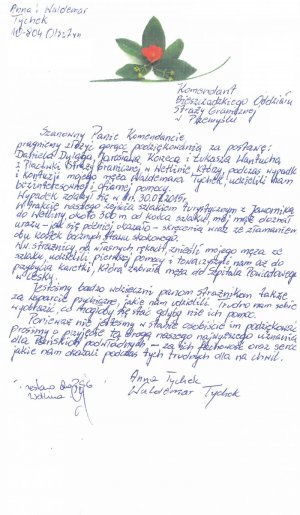 Anna i Waldemar
Tychek
10-804 Olsztyn
Komendant
Bieszczadzkiego Oddziału
Straży Granicznej
w Przemyślu
Szanowny Panie Komendancie
pragniemy złożyć gorące podziękowania za postawę:
Daniela Dyląga, Jarosława Korzca i Łukasza Hantucha
z Placówki Straży Granicznej w Wetlinie, którzy podczas wypadku
i kontuzji mojego męża Waldemara Tychek, udzielili nam
bezinteresownej i ofiarnej pomocy.
Wypadek zdarzył się w dn. 30.07.2015r.
W trakcie naszego zejścia szlakiem turystycznym z Jawornika
do Wetliny, około 300 m od końca szlaku, mój mąż doznał
urazu – jak się później okazało – skręcenia wraz ze złamaniem
obu kostek bocznych stawu skokowego.
W/w strażnicy, na własnych rękach, znieśli mojego męża ze
szlaku, udzielili pierwszej pomocy i towarzyszyli nam aż do
przybycia karetki, która zabrała męża do Szpitala Powiatowego
w Lesku.
Jesteśmy bardzo wdzięczni panom Strażnikom także
za wsparcie psychiczne, jakie nam udzielili. Trudno nam sobie
wyobrazić, co mogłoby się stać gdyby nie ich pomoc.
Ponieważ nie jesteśmy w stanie osobiście im podziękować
prosimy o przyjęcie tą drogą naszego najwyższego uznania
dla Pańskich podwładnych, – za ich fachowość oraz serce
jakie nam okazali podczas tych trudnych dla nas chwil.
Anna Tychek
Waldemar Tychek